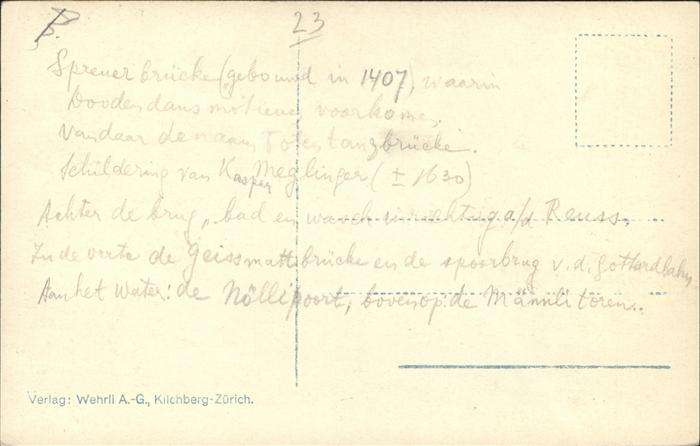 23
Spreuerbrücke (gebouwd in 1407), waarin
Doodendans motieven voorkomen.
Vandaar de naam Totentanzbrücke.
Schildering van Kasper Meglinger (± 1630)
Achter de brug „bad en wasch inrichting a/d Reuss.
In de verte de Geissmattbrücke en de spoorbrug v.d. Gotthardbahn
Aan het water: de Nöllipoort, bovenop: de Männlitoren..
Verlag: Wehrli A.-G., Kilchberg-Zürich.